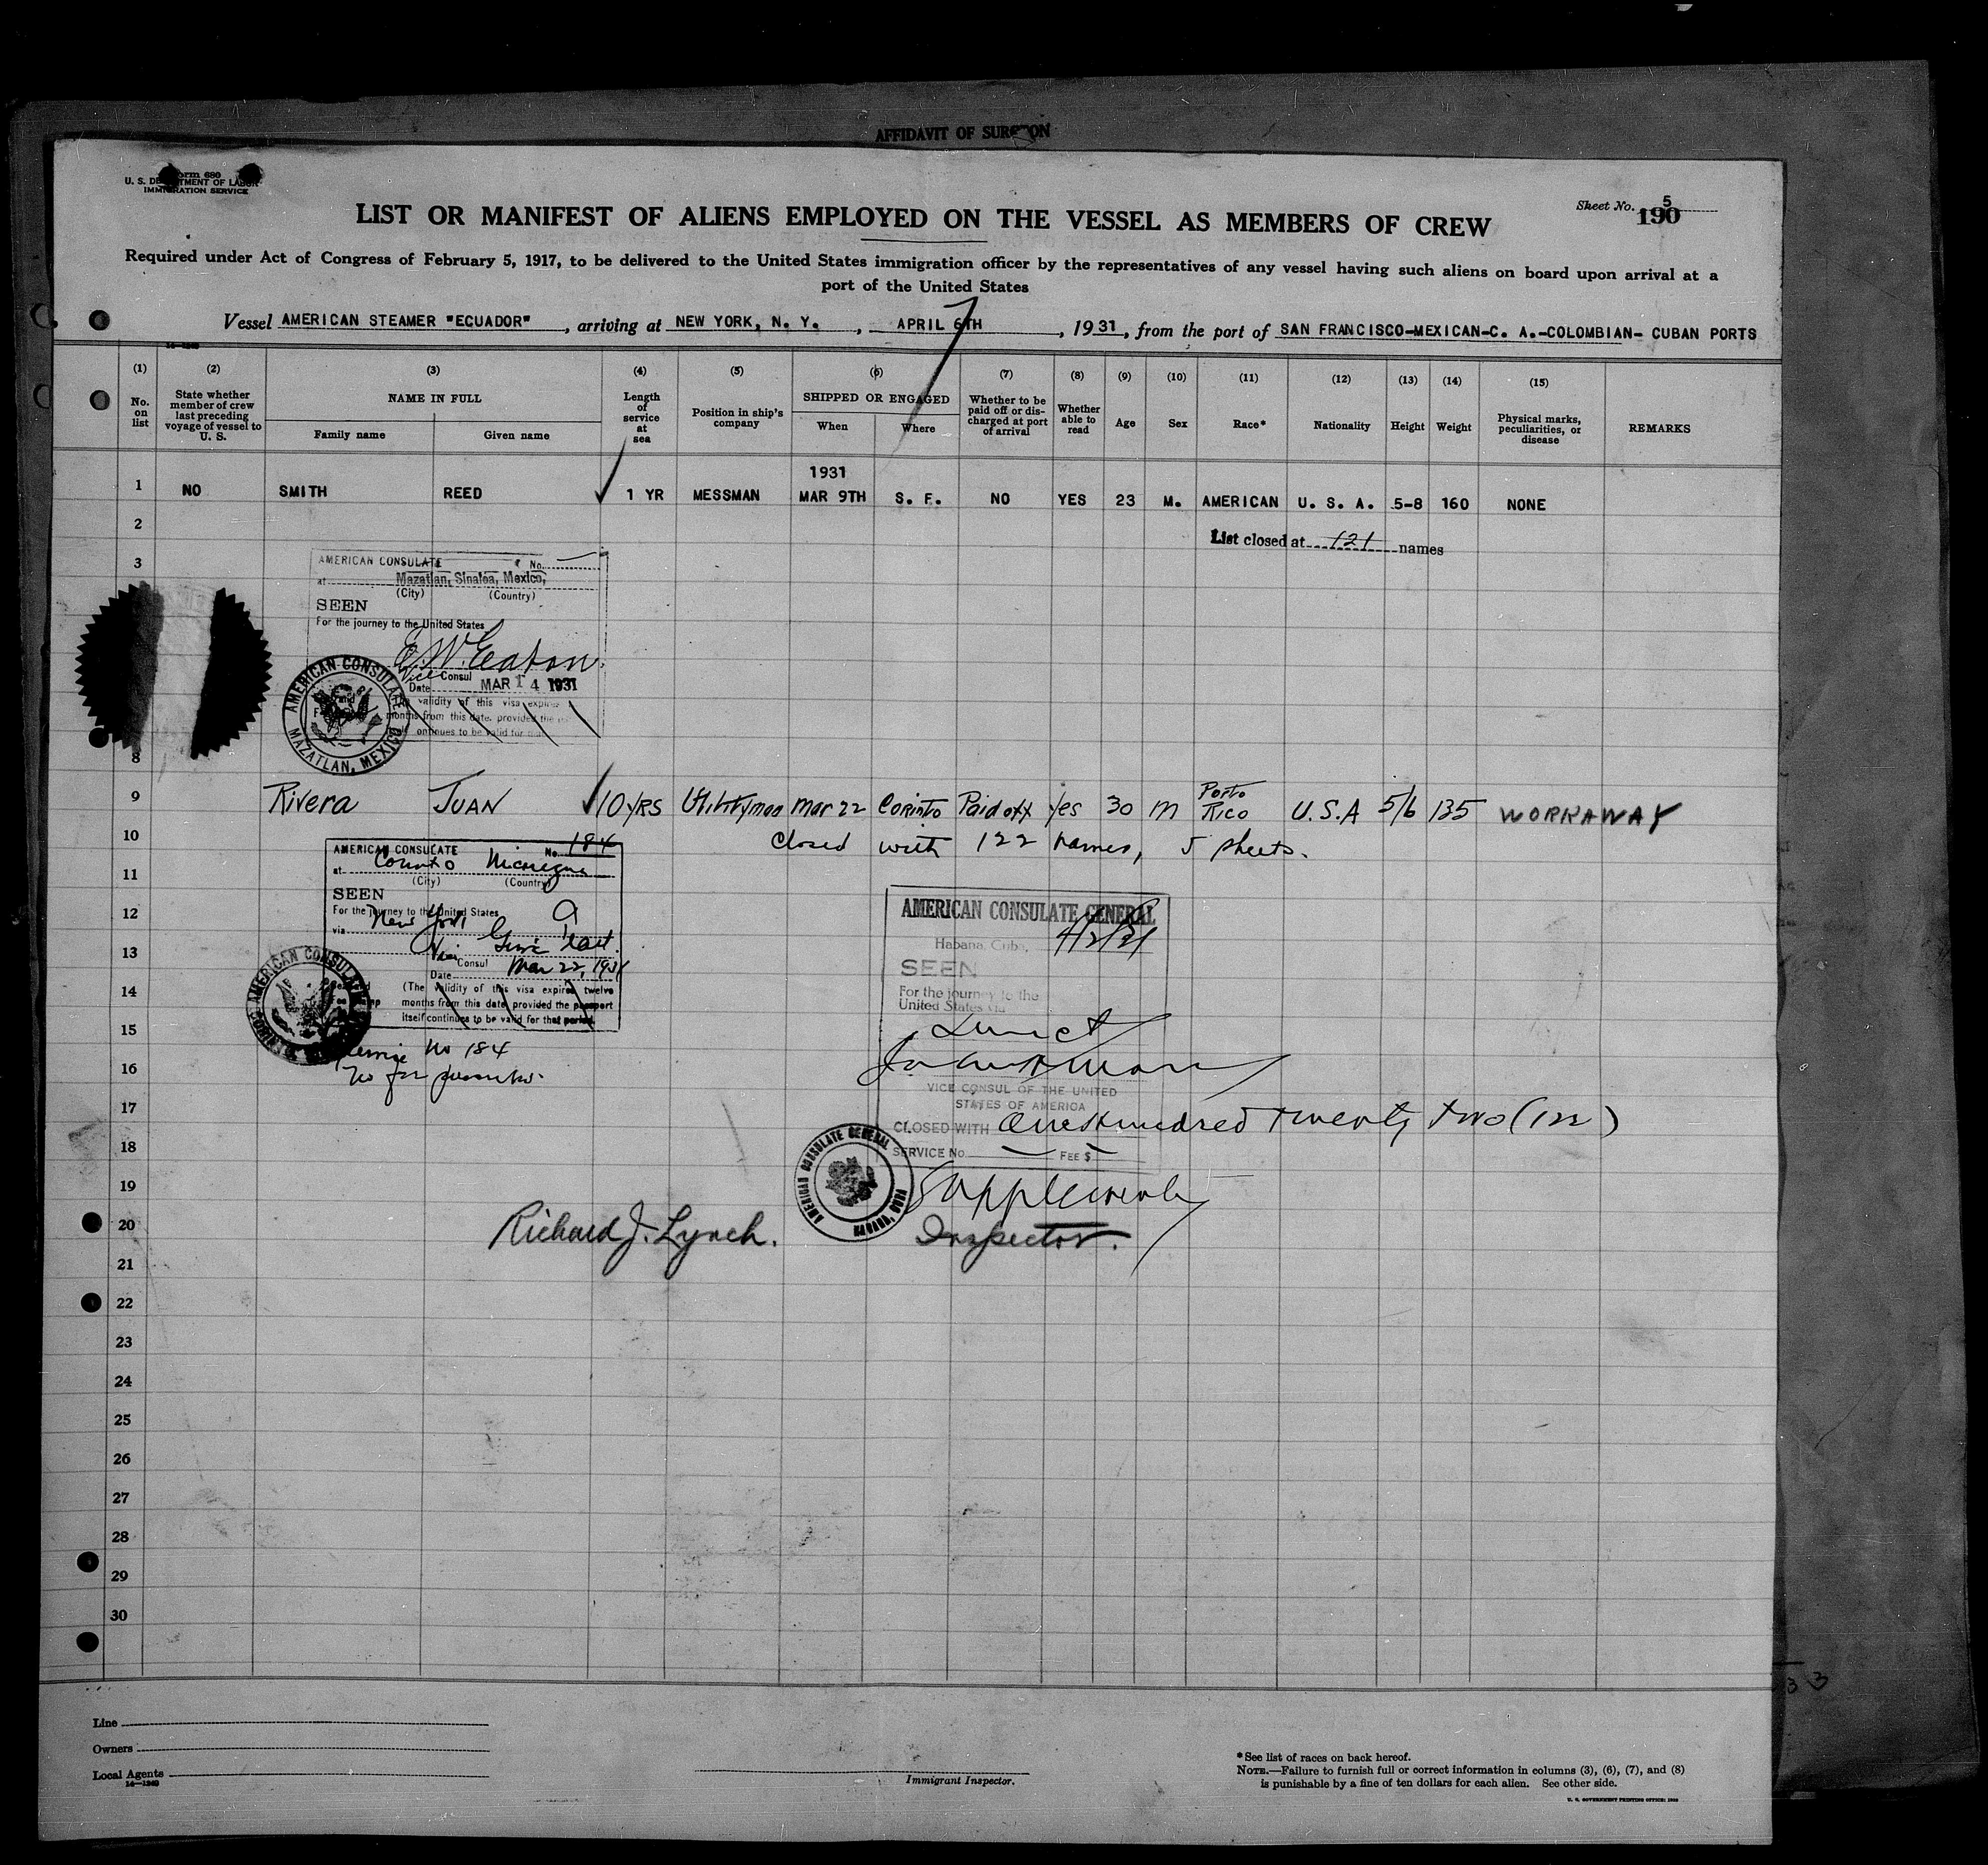 AFFIDAVIT OF SURGEON
Form 680
U. S. DEPARTMENT OF LABOR
IMMIGRATION SERVICE
Sheet No. 5
190
LIST OR MANIFEST OF ALIENS EMPLOYED ON THE VESSEL AS MEMBERS OF CREW
Required under Act of Congress of February 5, 1917, to be delivered to the United States immigration officer by the representatives of any vessel having such aliens on board upon arrival at a
port of the United States
Vessel AMERICAN STEAMER "ECUADOR", arriving at NEW YORK, N. Y., APRIL 6TH, 1931, from the port of SAN FRANCISCO-MEXICAN-C. A.-COLOMBIAN- CUBAN PORTS
(1) (2) (3) (4) (5) (6) (7) (8) (9) (10) (11) (12) (13) (14) (15)
No. on list
State whether member of crew last preceding voyage of vessel to U. S.
NAME IN FULL
Family name
Given name
Length of service at sea
Position in ship's company
SHIPPED OR ENGAGED
When
Where
Whether to be paid off or discharged at port of arrival
Whether able to read
Age
Sex
Race*
Nationality
Height
Weight
Physical marks, peculiarities, or disease
REMARKS
1931
1 NO SMITH REED 1 YR MESSMAN MAR 9TH S. F. NO YES 23 M. AMERICAN U. S. A. 5-8 160 NONE
2
List closed at 121 names
3
AMERICAN CONSULATE No.
at Mazatlan, Sinaloa, Mexico,
(City) (Country)
SEEN
For the journey to the United States
E. W. Eaton
Vice Consul
Date MAR 14 1931
validity of this visa expires
months from this date, provided the
continues to be valid for that
AMERICAN CONSULATE MAZATLAN, MEXICO
8
9 Rivera JUAN 10 YRS Utilityman Mar 22 Corinto Paid off Yes 30 M Porto Rico U.S.A 5/6 135 WORKAWAY
10 Closed with 122 names, 5 sheets.
AMERICAN CONSULATE No. 184
at Corinto Nicaragua
(City) (Country)
11
SEEN
For the journey to the United States
12
via New York
13
Vice Consul
Date Mar 22, 1931
14
(The validity of this visa expires twelve
months from this date, provided the passport
itself continues to be valid for that period.
AMERICAN CONSULAR
15
Service No 184
16
AMERICAN CONSULATE GENERAL
Habana, Cuba, 4/2/31
SEEN
For the journey to the
United States via
VICE CONSUL OF THE UNITED
STATES OF AMERICA
17
CLOSED WITH One hundred twenty two (122)
18
SERVICE No. FEE $
AMERICAN CONSULATE GENERAL HABANA, CUBA
19
Supplementary
20
Richard J. Lynch. Inspector.
21
22
23
24
25
26
27
28
29
30
33
Line
Owners
Local Agents
14-1240
Immigrant Inspector.
* See list of races on back hereof.
NOTE.—Failure to furnish full or correct information in columns (3), (6), (7), and (8)
is punishable by a fine of ten dollars for each alien. See other side.